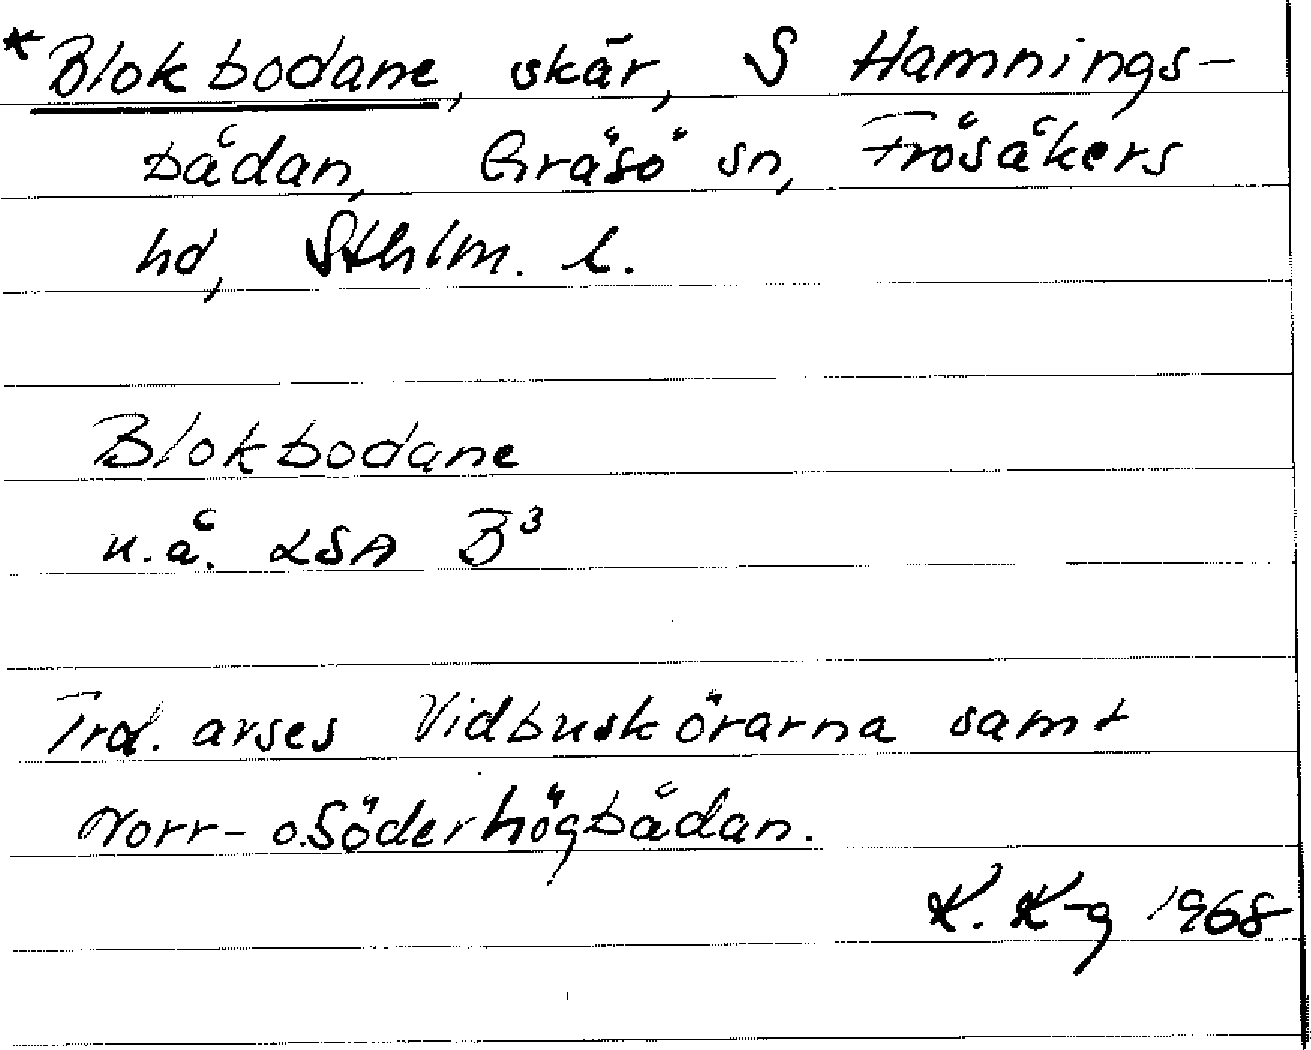 *Blokbodane, skär, S Hamnings-
bådan, Gräsö sn, Frösåkers
hd, Sthlm. l.
Blokbodane
u.å. LSA B³
Trol. avses Vidbuskörarna samt
Norr- o.Söderhögbådan.
K. K-g 1968